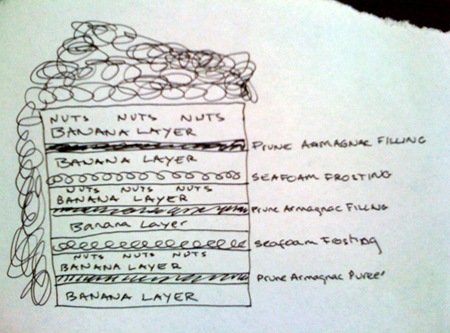 NUTS NUTS NUTS
BANANA LAYER
PRUNE ARMAGNAC FILLING
BANANA LAYER
SEAFOAM FROSTING
NUTS NUTS NUTS
BANANA LAYER
Prune Armagnac Filling
Banana Layer
Seafoam Frosting
NUTS NUTS NUTS
BANANA LAYER
Prune Armagnac Pureé
BANANA LAYER